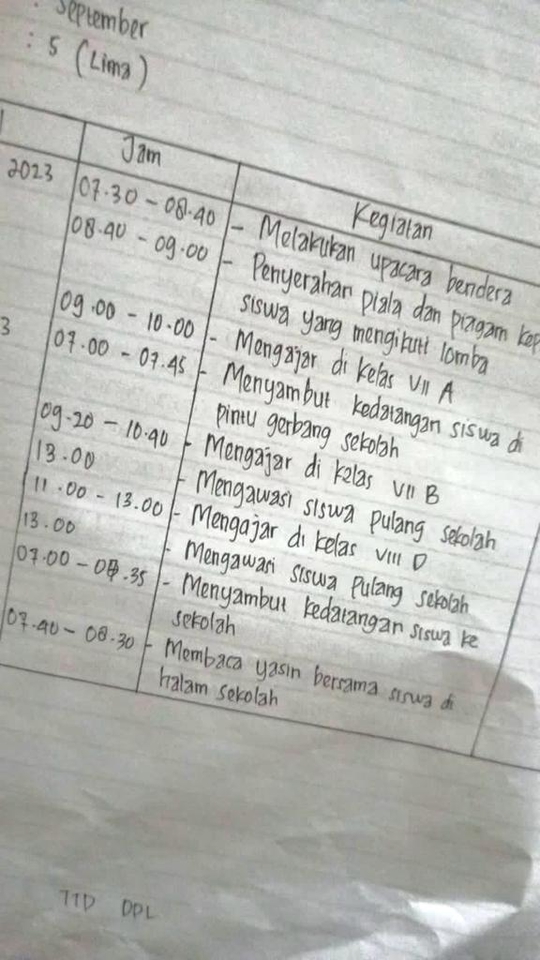 : September
: 5 (Lima)
Jam Kegiatan
2023 07.30 - 08.40 - Melakukan upacara bendera
08.40 - 09.00 - Penyerahan piala dan piagam kep
siswa yang mengikuti lomba
09.00 - 10.00 - Mengajar di kelas VII A
3 07.00 - 07.45 - Menyambut kedatangan siswa di
pintu gerbang sekolah
09.20 - 10.40 - Mengajar di kelas VII B
13.00 - Mengawasi siswa pulang sekolah
11.00 - 13.00 - Mengajar di kelas VIII D
13.00 - Mengawasi siswa pulang sekolah
07.00 - 07.35 - Menyambut kedatangan siswa ke
sekolah
07.40 - 08.30 - Membaca yasin bersama siswa di
halam sekolah
TTD DPL